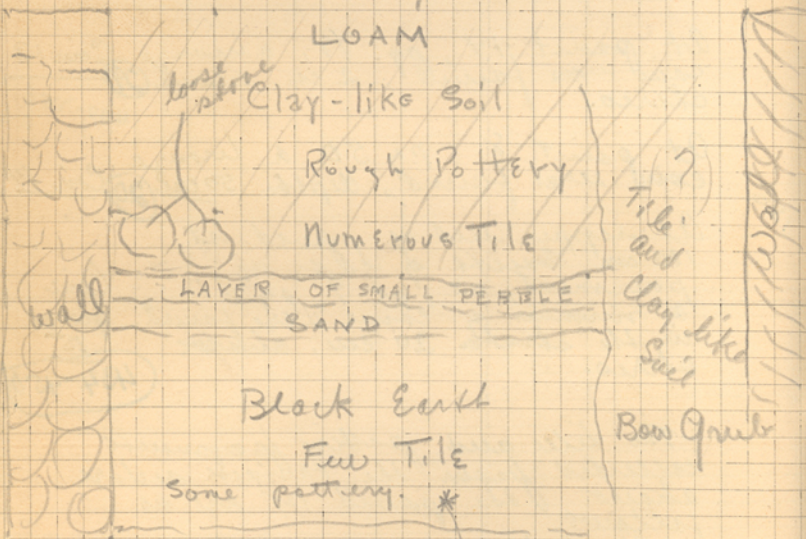 LOAM
loose
stone
Clay-like Soil
Rough Pottery
Numerous Tile
LAYER OF SMALL PEBBLE
SAND
Black Earth
Few Tile
Some pottery. *
wall
(?)
Tile
and
Clay like
Soil
Wall